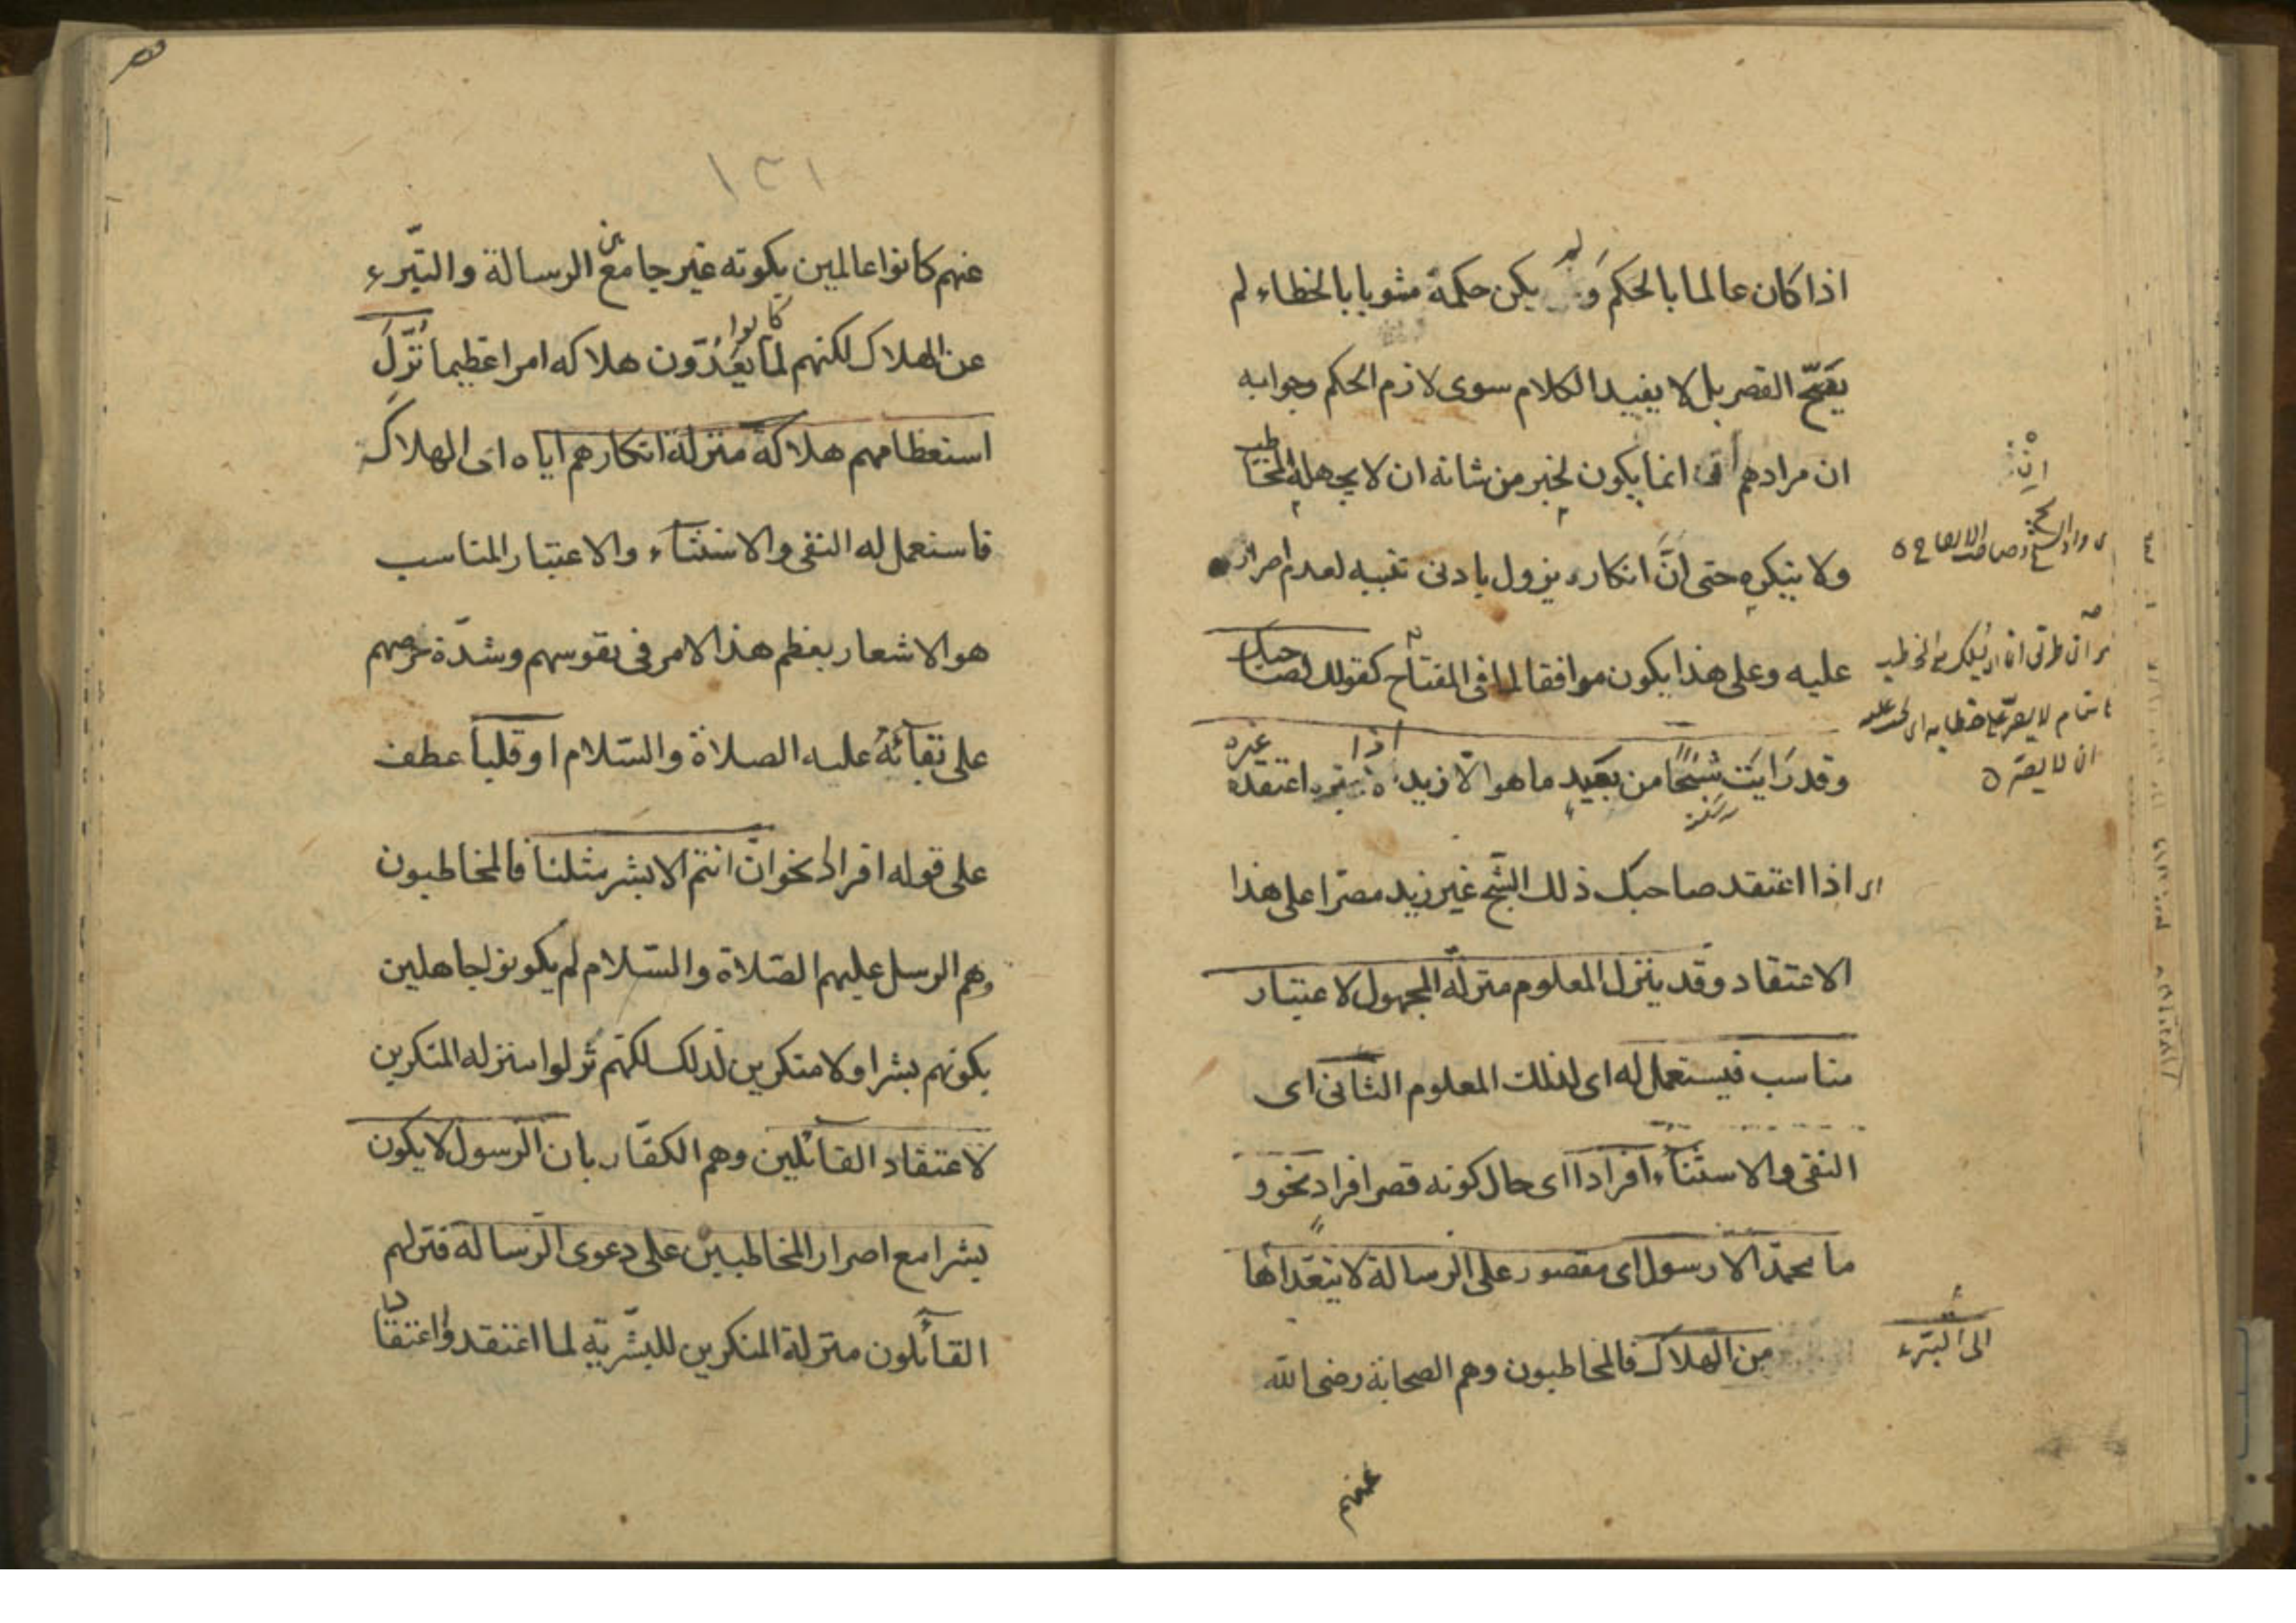 اذا كان عالما بالحكم ولم يكن حكمه مشوبا بالخطاء لم
يصحّ القصر بل لا يفيد الكلام سوى لازم الحكم وجوابه
ان مرادهم انما يكون لخبر من شانه ان لا يجهله المخاطب
ولا ينكره حتى انّ انكاره يزول بادنى تنبيه لعدم اصراره
عليه وعلى هذا يكون موافقا لما فى المفتاح كقولك لصاحبك
وقد رايت شبحًا من بعيد ما هو الّا زيد اذا اعتقده غيره
اى اذا اعتقد صاحبك ذلك الشبح غير زيد مصرّا على هذا
الاعتقاد وقد ينزل المعلوم منزلة المجهول لاعتبار
مناسب فيستعمل له اى لذلك المعلوم الثانى اى
النفى والاستثناء افرادا اى حال كونه قصر افراد نحو و
ما محمّد الا رسول اى مقصور على الرسالة لا يتعدّاها
الى التبرء
من الهلاك فالمخاطبون وهم الصحابة رضى الله
عنهم
١٣١
عنهم كانوا عالمين بكونه غير جامع بين الرسالة والتبّرء
عن الهلاك لكنهم لمّا كانوا يعدّون هلاكه امرا عظيما نُزّلَ
استعظامهم هلاكه منزلة انكارهم اياه اى الهلاك
فاستعمل له النفى والاستثناء والاعتبار المناسب
هو الاشعار بعظم هذا الامر فى نفوسهم وشدّة حرصهم
على بقائه عليه الصلاة والسّلام او قلبا عطف
على قوله افرادا نحو ان انتم الا بشر مثلنا فالمخاطبون
وهم الرسل عليهم الصّلاة والسّلام لم يكونوا جاهلين
بكونهم بشرا ولا منكرين لذلك لكنّهم نُزلوا منزلة المنكرين
لاعتقاد القائلين وهم الكفّار بان الرّسول لا يكون
بشرا مع اصرار المخاطبين على دعوى الرّسالة فنزلهم
القائلون منزلة المنكرين للبشّرية لما اعتقدوا اعتقادا